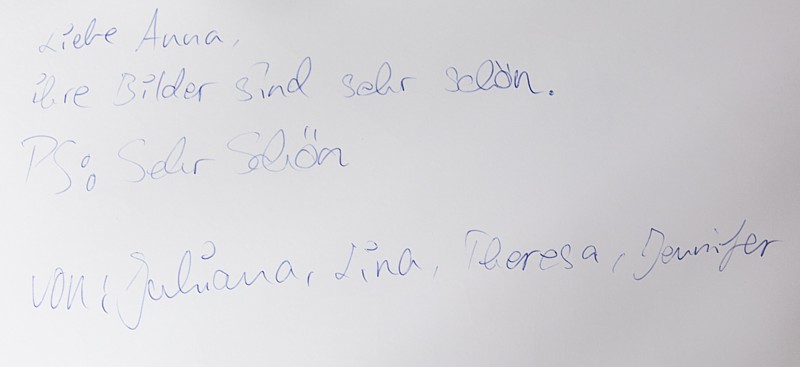 Liebe Anna,
ihre Bilder sind sehr schön.
PS: Sehr Schön
von: Juliana, Lina, Theresa, Jennifer